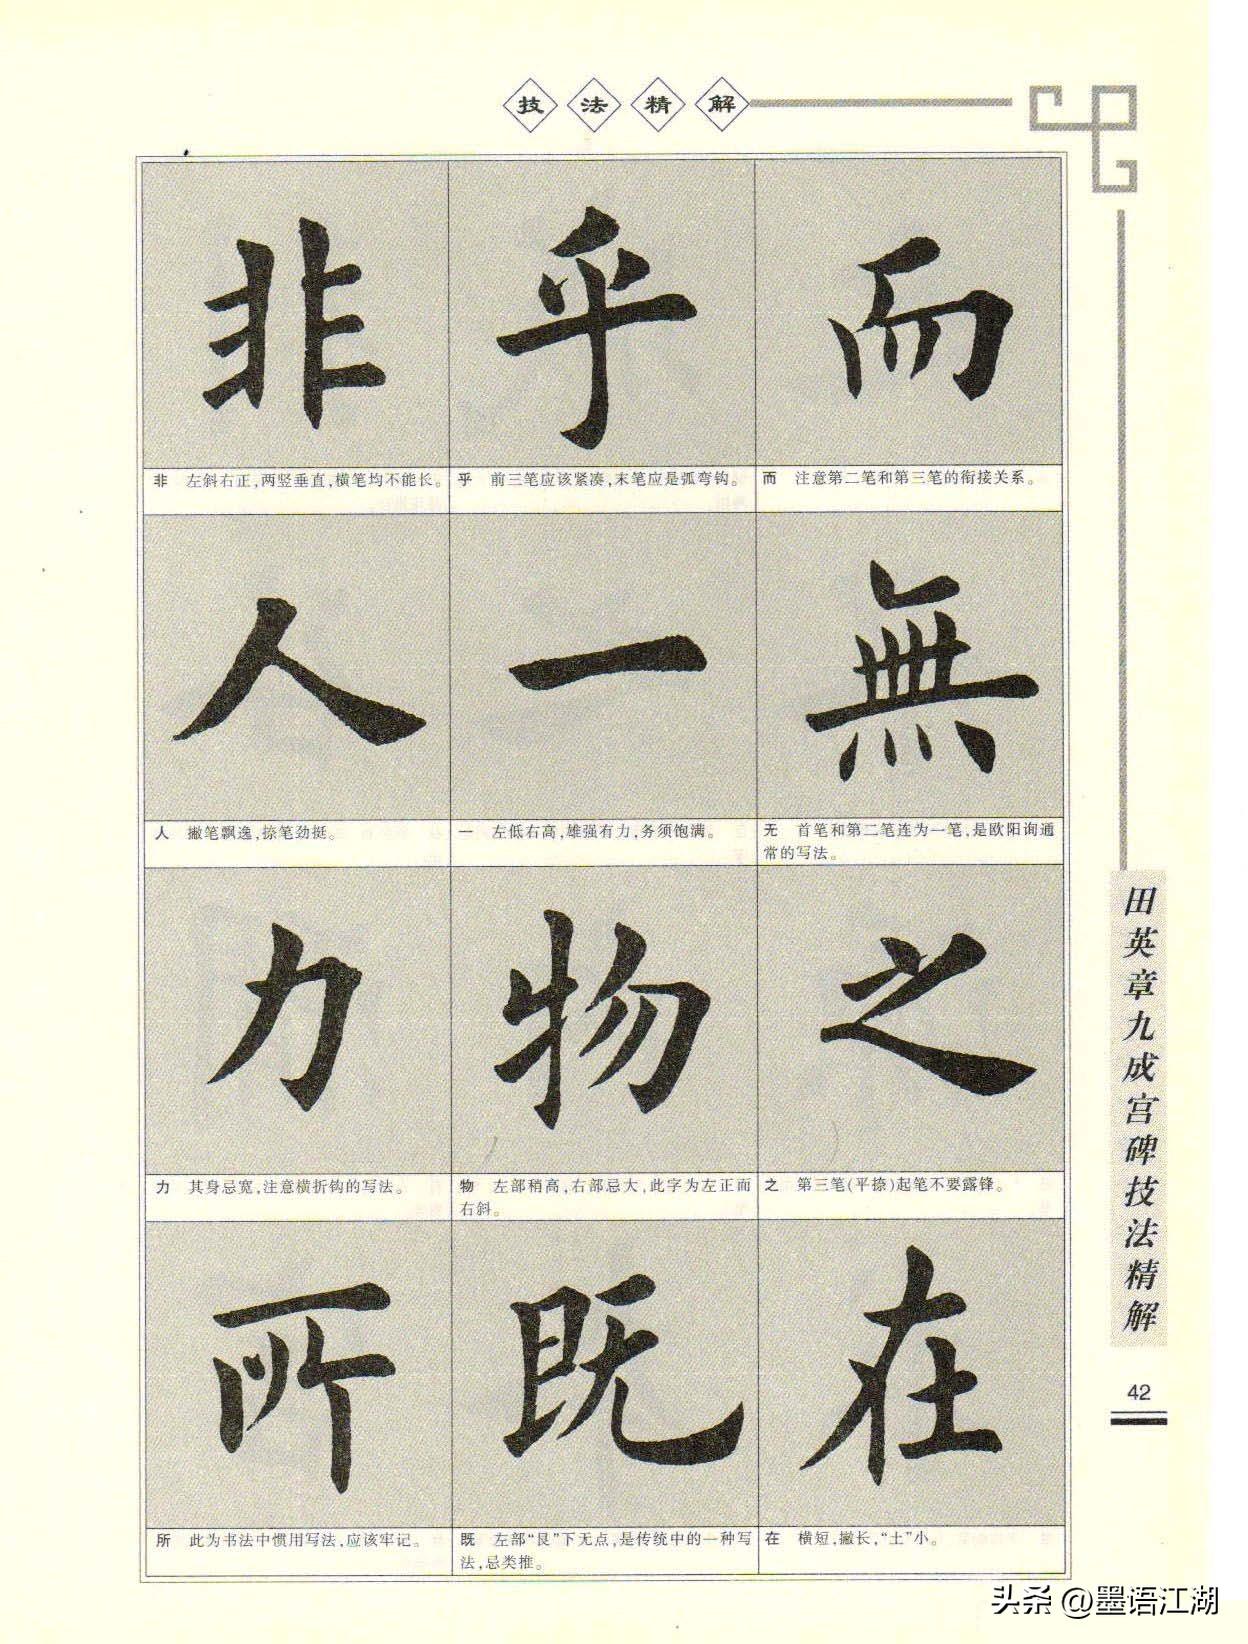 技法精解
非 乎 而
非 左斜右正,两竖垂直,横笔均不能长。
乎 前三笔应该紧凑,末笔应是弧弯钩。
而 注意第二笔和第三笔的衔接关系。
人 一 無
人 撇笔飘逸,捺笔劲挺。
一 左低右高,雄强有力,务须饱满。
无 首笔和第二笔连为一笔,是欧阳询通
常的写法。
力 物 之
力 其身忌宽,注意横折钩的写法。
物 左部稍高,右部忌大,此字为左正而
右斜。
之 第三笔(平捺)起笔不要露锋。
所 既 在
所 此为书法中惯用写法,应该牢记。
既 左部“艮”下无点,是传统中的一种写
法,忌类推。
在 横短,撇长,“土”小。
田英章九成宫碑技法精解
42
头条 @墨语江湖